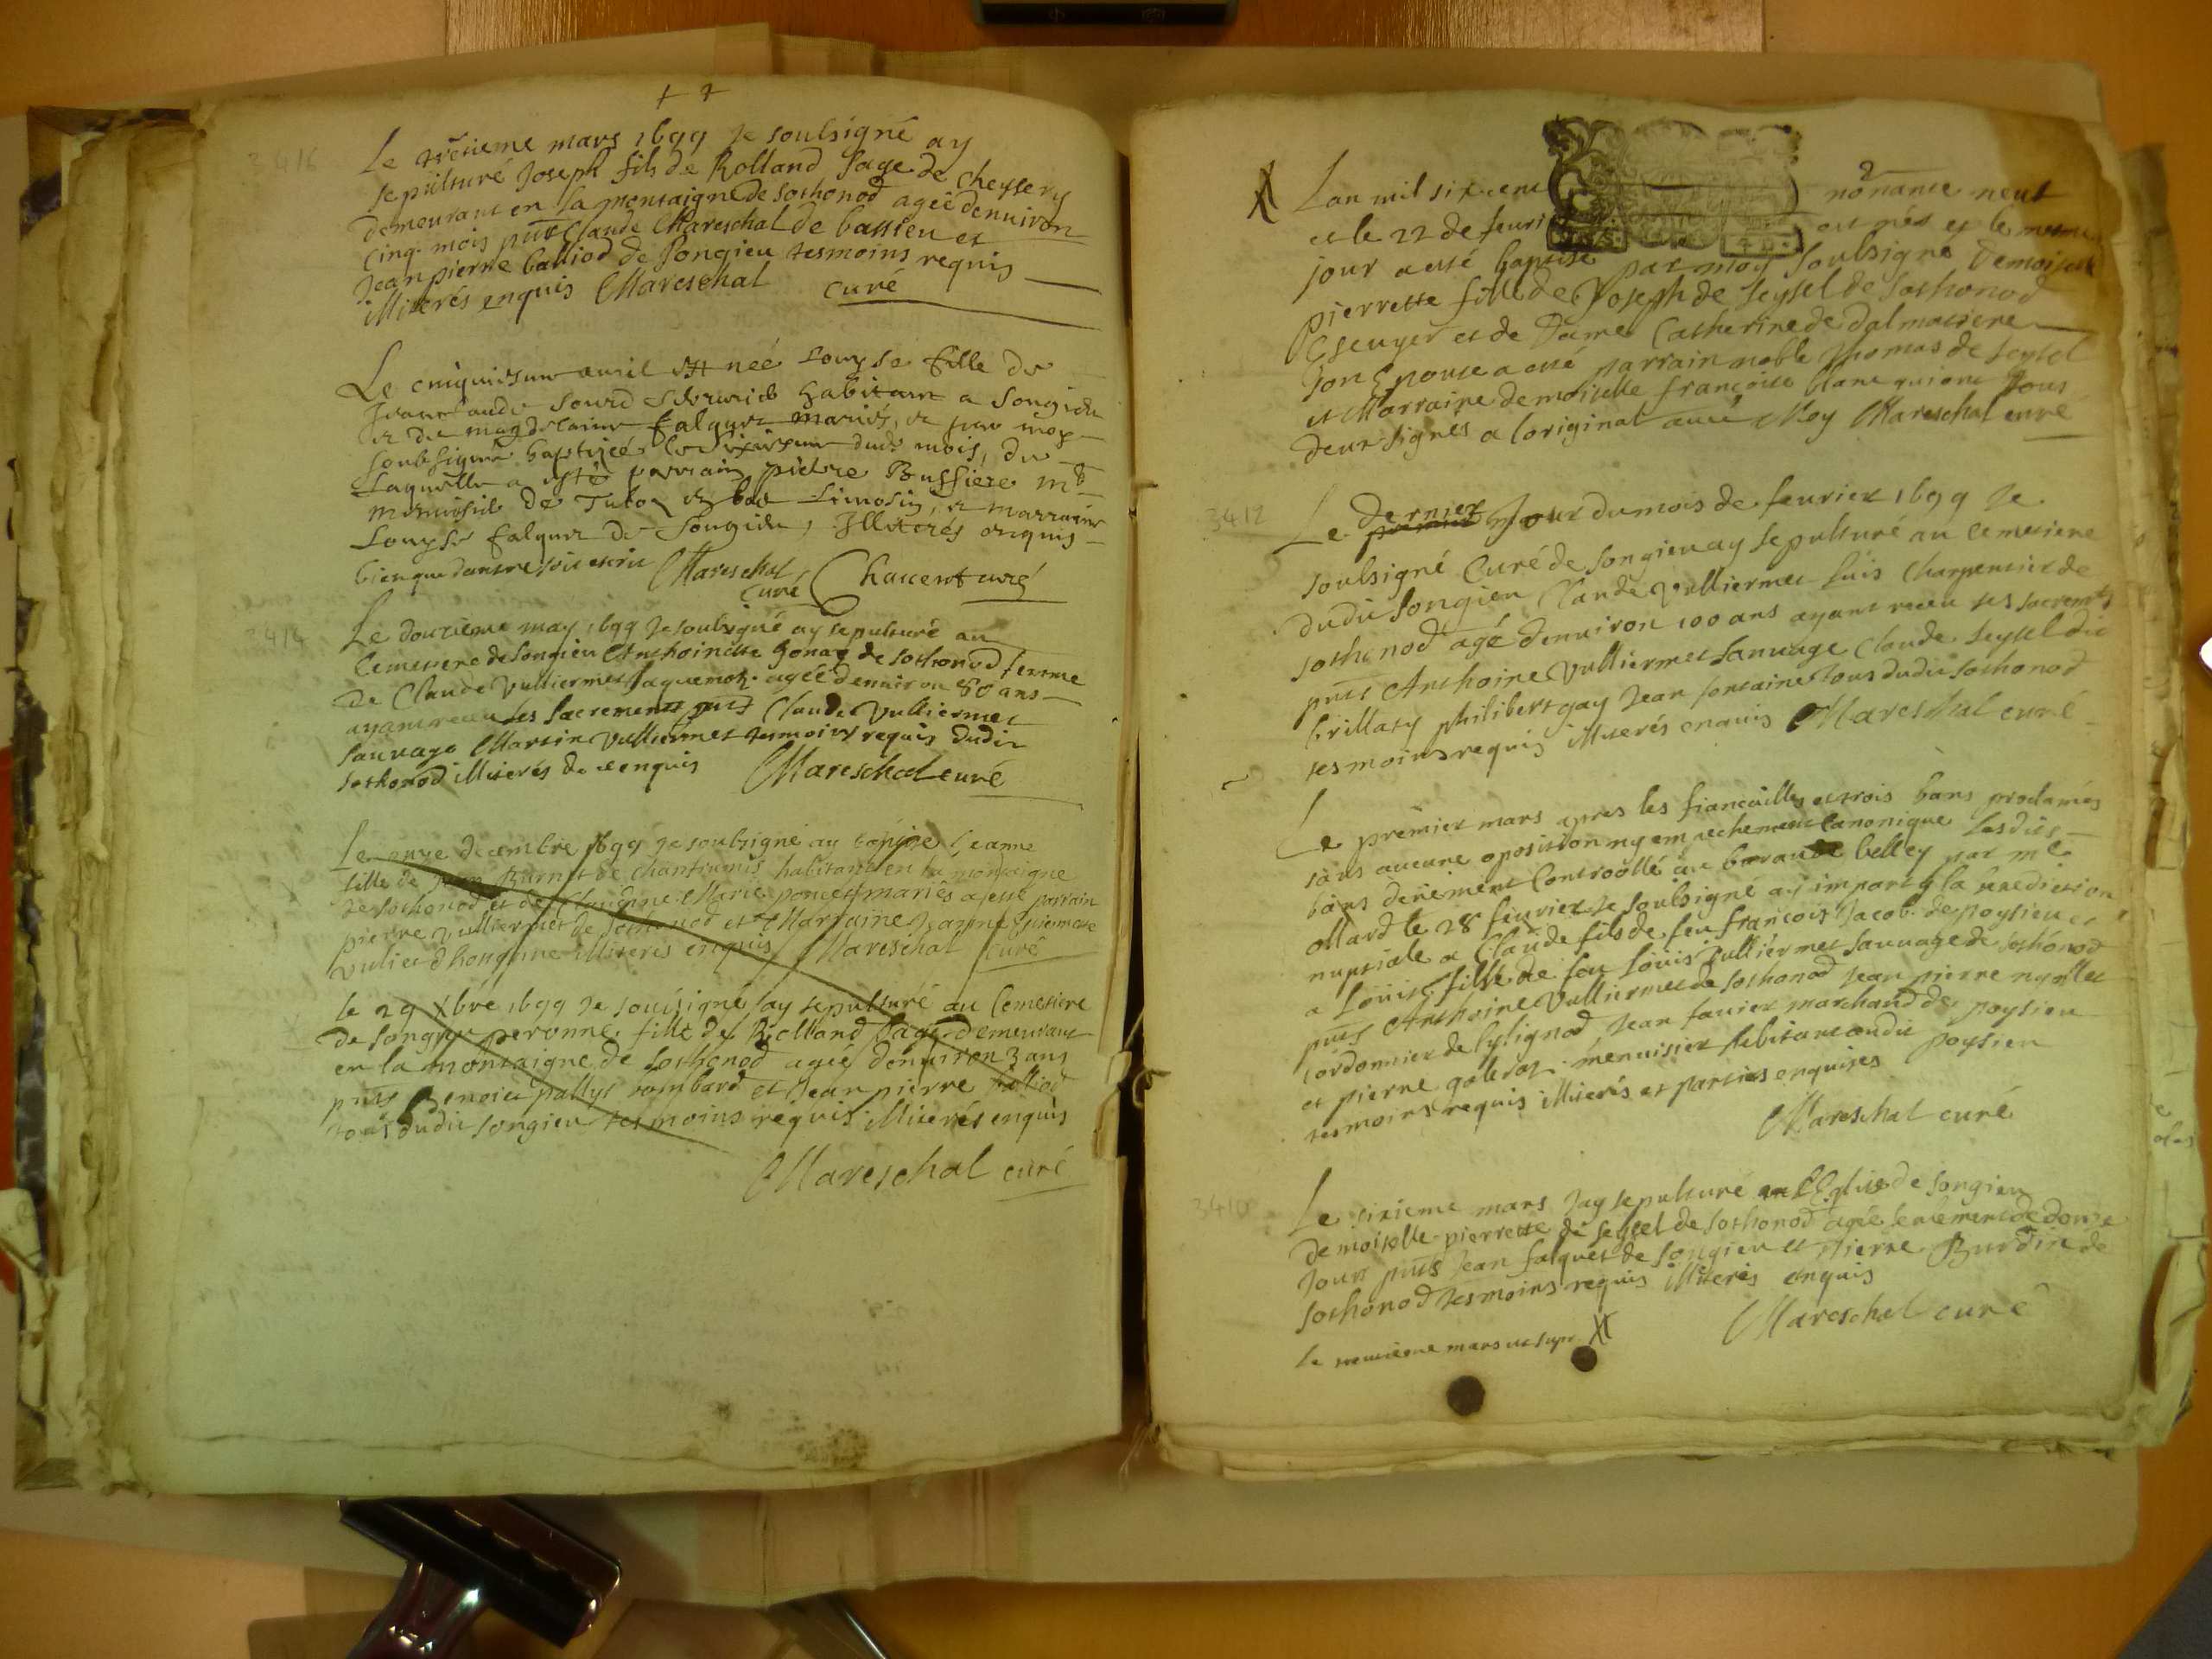 3416
Le treisieme mars 1699 Je soubsigné ay
sepulturé Joseph fils de Rolland sage de cheysery
demeurant en la montaigne de sothonod agee denuiron
cinq. mois pnts Claude Mareschal de bassieu et
Jean pierre balliod de Songieu tesmoins requis
illiterés enquis Mareschal curé
Le cinquiesme auril est neé Louyse fille de
habitant a Songieu
et de magdelaine falquet mariés, et par moy
soubsigné baptizeé le sixiesme dud mois, de
Laquelle a esté parrain pierre Bussiere md
de Tulo bas Limosin, et marraine
Louyse falquet de Songieu, Illiterés enquis
bien que dautre soit escrit Mareschal curé
3414
Le douzieme may 1699 Je soubsigné ay sepulturé au
Cemetiere de Songieu Anthoinette de sothonod femme
de Claude Vulliermet Jaquemot. agée denuiron 80 ans
ayant receu les sacrements pnts Claude Vulliermet
Sauuage Martin Vulliermet tesmoins requis dudit
sothonod illiterés de ce enquis Mareschal curé
Le onze decembre 1699 Je soubsigné ay Jeanne
fille de habitants en la montaigne
de sothonod et de Marie poncet mariés a esté parrain
pierre Vulliermet de sothonod et Marraine Jeanne
illiteres enquis Mareschal Curé
le 29 xbre 1699 Je souscigné ay sepulturé au Cemetiere
de Songieu peronne fille de Rolland sage demeurant
en la montaigne de sothonod agée denuiron 3 ans
pnts Benoict pallys rombard et Jean pierre balliod
tous dudit Songieu tesmoins requis illiterés enquis
Mareschal curé
Lan mil six cent nonante neuf
et le 22 de feuri est née et le mesme
jour a esté baptisé par moy soubsigné Demoiselle
pierrette fille de Joseph de seyssel de Sothonod
Escuyer et de Dame Catherine de dalmatiere
son Epouse a esté parrain noble Thomas de seyssel
et Marraine demoiselle francoise blanc qui ont tous
deux signés a loriginal auec Moy Mareschal curé
3412
Le premier dernier Jour du mois de feurier 1699 Je
soubsigné Curé de Songieu ay sepulturé au Cemetiere
dudit Songieu Claude Vulliermet Charpentier de
sothonod agé denuiron 100 ans ayant receu ses sacremts
pnts Anthoine Vulliermet Sauuage Claude seyssel dit
brillaty philibert gay Jean fontaine tous dudit sothonod
tesmoins requis illiterés enquis Mareschal curé
Le premier mars apres les fiancailles et trois bans proclamés
sans aucune oposition ny empechement Canonique lesdits
bans deüement Controollé au bureau de belley par me
ollard le 28 feurier Je soubsigné ay imparty la benediction
nuptiale a Claude fils de feu francois Jacob de poysieu et
a Louise fille de feu Louis Vulliermet Sauuage de sothonod
pnts Anthoine Vulliermet de sothonod Jean pierre
Cordonnier de lylignod Jean fauier marchand de poysieu
et pierre menuisier habitant audit poysieu
tesmoins requis illiterés et parties enquises
Mareschal curé
3410
Le sixieme mars Jay sepulturé en lEglise de Songieu
demoiselle pierrette de seyssel de sothonod agée seulement de douze
Jours pnts Jean falquet de Songieu et pierre Burdin de
Sothonod tesmoins requis illiterés enquis
Mareschal curé
Le treisieme mars ut supr